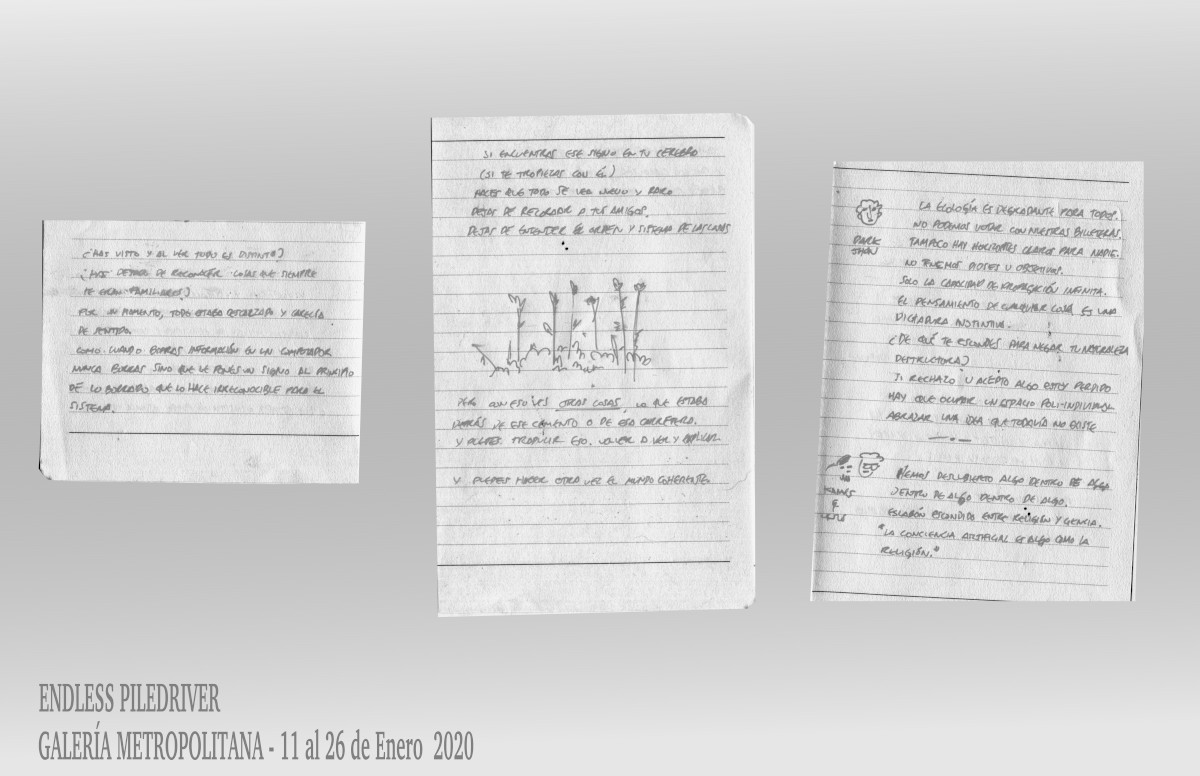 ¿HAS VISTO Y AL VER TODO ES DISTINTO?
¿HAS DEJADO DE RECONOCER COSAS QUE SIEMPRE
TE ERAN FAMILIARES?
POR UN MOMENTO, TODO ESTABA DESTROZADO Y CARECÍA
DE SENTIDO.
COMO CUANDO BORRAS INFORMACIÓN EN UN COMPUTADOR
NUNCA BORRAS SINO QUE LE PONES UN SIGNO AL PRINCIPIO
DE LO BORRADO QUE LO HACE IRRECONOCIBLE PARA EL
SISTEMA.
SI ENCUENTRAS ESE SIGNO EN TU CEREBRO
(SI TE TROPIEZAS CON ÉL)
HACES QUE TODO SE VEA NUEVO Y RARO
DEJAS DE RECORDAR A TUS AMIGOS.
DEJAS DE ENTENDER EL ORDEN Y SISTEMA DE LAS COSAS
PERO CON ESO VES OTRAS COSAS, LO QUE ESTABA
DETRÁS DE ESE CEMENTO O DE ESA CARRETERA.
Y PUEDES TRADUCIR ESO. VOLVER A VER Y EXPLICAR.
Y PUEDES HACER OTRA VEZ EL MUNDO COHERENTE.
DARK
LA ECOLOGÍA ES DEGRADANTE PARA TODOS.
NO PODEMOS VOTAR CON NUESTRAS BILLETERAS.
TAMPOCO HAY HORIZONTES CLAROS PARA NADIE.
NO TENEMOS DIOSES U OBJETIVOS.
SOLO LA CAPACIDAD DE PROPAGACIÓN INFINITA.
EL PENSAMIENTO DE CUALQUIER COSA ES UNA
DICTADURA INSTINTIVA.
¿DE QUÉ TE ESCONDES PARA NEGAR TU NATURALEZA
DESTRUCTORA?
SI RECHAZO U ACEPTO ALGO ESTOY PERDIDO
HAY QUE OCUPAR UN ESPACIO POLI-INDIVIDUAL
ABRAZAR UNA IDEA QUE TODAVÍA NO EXISTE
&
HEMOS DESCUBIERTO ALGO DENTRO DE ALGO
DENTRO DE ALGO DENTRO DE ALGO.
ESLABÓN ESCONDIDO ENTRE RELIGIÓN Y CIENCIA.
"LA CONCIENCIA ARTIFICIAL ES ALGO COMO LA
RELIGIÓN."
ENDLESS PILEDRIVER
GALERÍA METROPOLITANA - 11 al 26 de Enero 2020